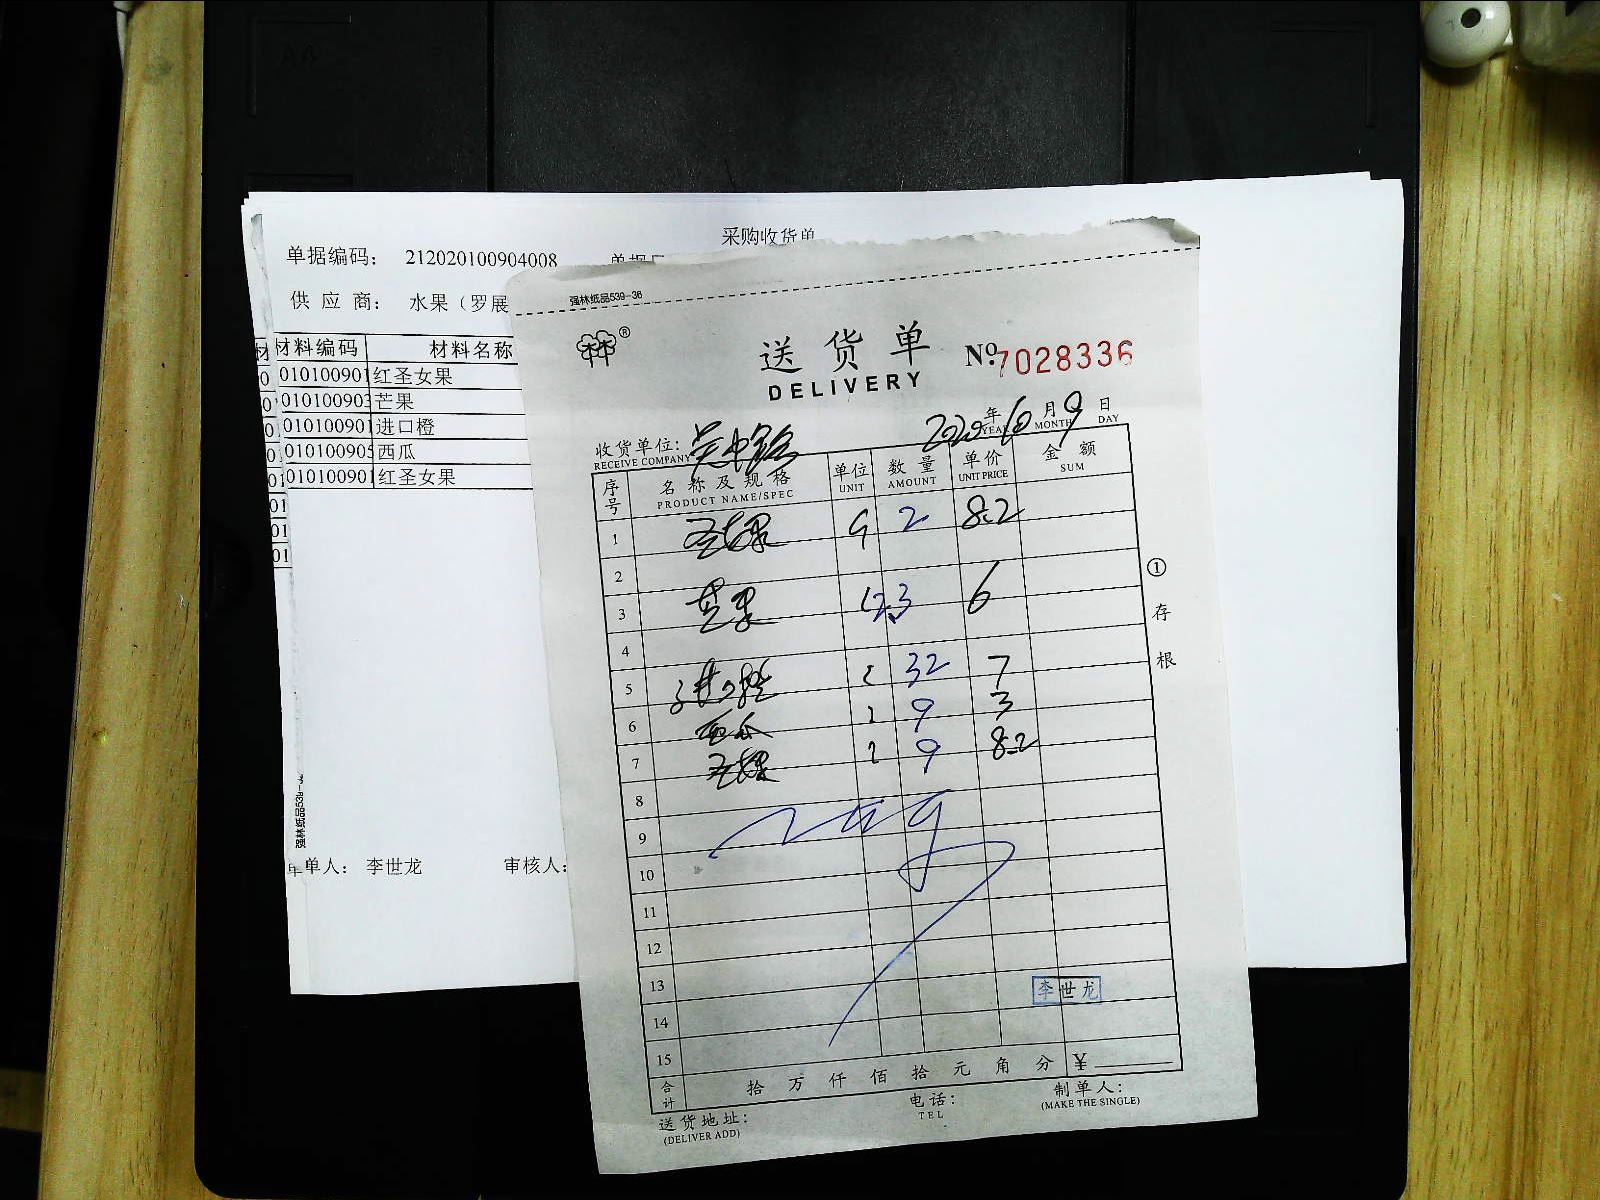 采购收货单
单据编码： 212020100904008
供 应 商： 水果（罗展
材料编码 材料名称
010100901 红圣女果
010100903 芒果
010100901 进口橙
010100905 西瓜
010100901 红圣女果
单人： 李世龙 审核人：
强林纸品539-36
送货单 №7028336
DELIVERY
收货单位：
RECEIVE COMPANY
2020年10月9日
YEAR MONTH DAY
序号 名称及规格 单位 数量 单价 金额
PRODUCT NAME/SPEC UNIT AMOUNT UNIT PRICE SUM
1 圣女果 2 8.2
2
3 芒果 23 6
4
5 进口橙 32 7
6 西瓜 9 3
7 圣女果 9 8.2
8
9
10
11
12
13 李世龙
14
15
合计 拾 万 仟 佰 拾 元 角 分 ¥
送货地址： 电话： 制单人：
(DELIVER ADD) TEL (MAKE THE SINGLE)
①存根